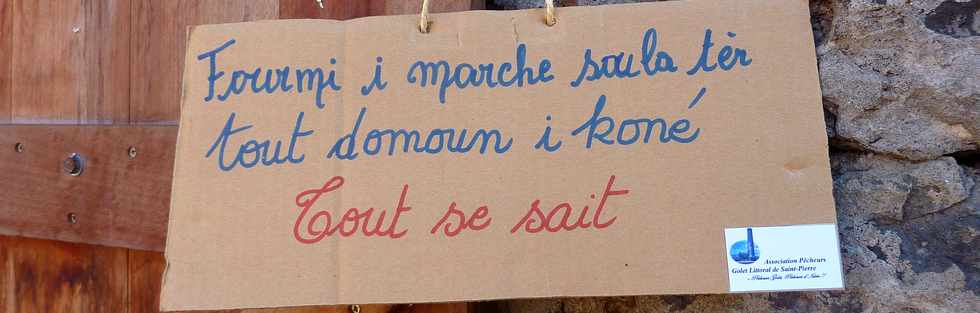 Fourmi i marche su la tèr
tout domoun i koné
Tout se sait
Association Pêcheurs
Golet Littoral de Saint-Pierre